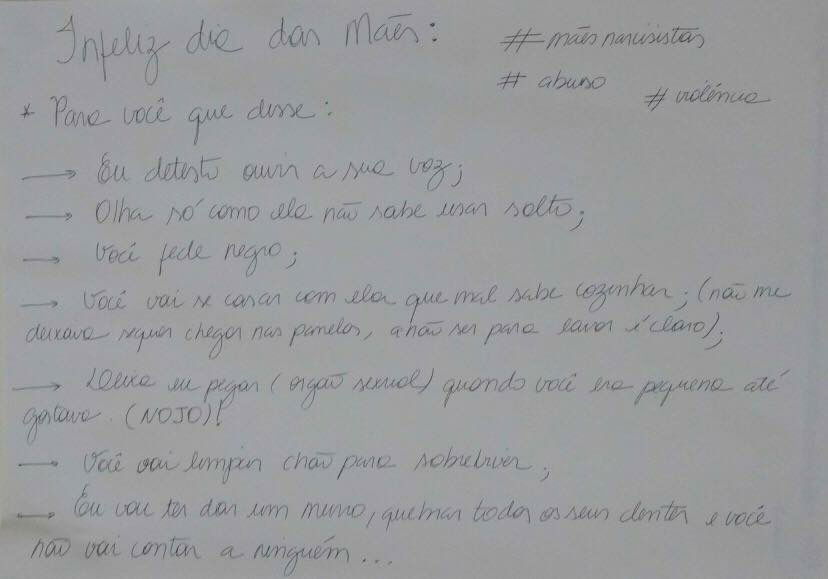 Infeliz dia das Mães:
#mãesnarcisistas
# abuso
# violência
* Para você que disse:
→ Eu detesto ouvir a sua voz;
→ Olha só como ela não sabe usar salto;
→ Você fede negro;
→ Você vai se casar com ela que mal sabe cozinhar; (não me
deixava sequer chegar nas panelas, a não ser para lavar é claro);
→ Deixa eu pegar (orgão sexual) quando você era pequena até
gostava. (NOJO)!
→ Você vai limpar chão para sobreviver;
→ Eu vou ter dar um murro, quebrar todos os seus dentes e você
não vai contar a ninguém...